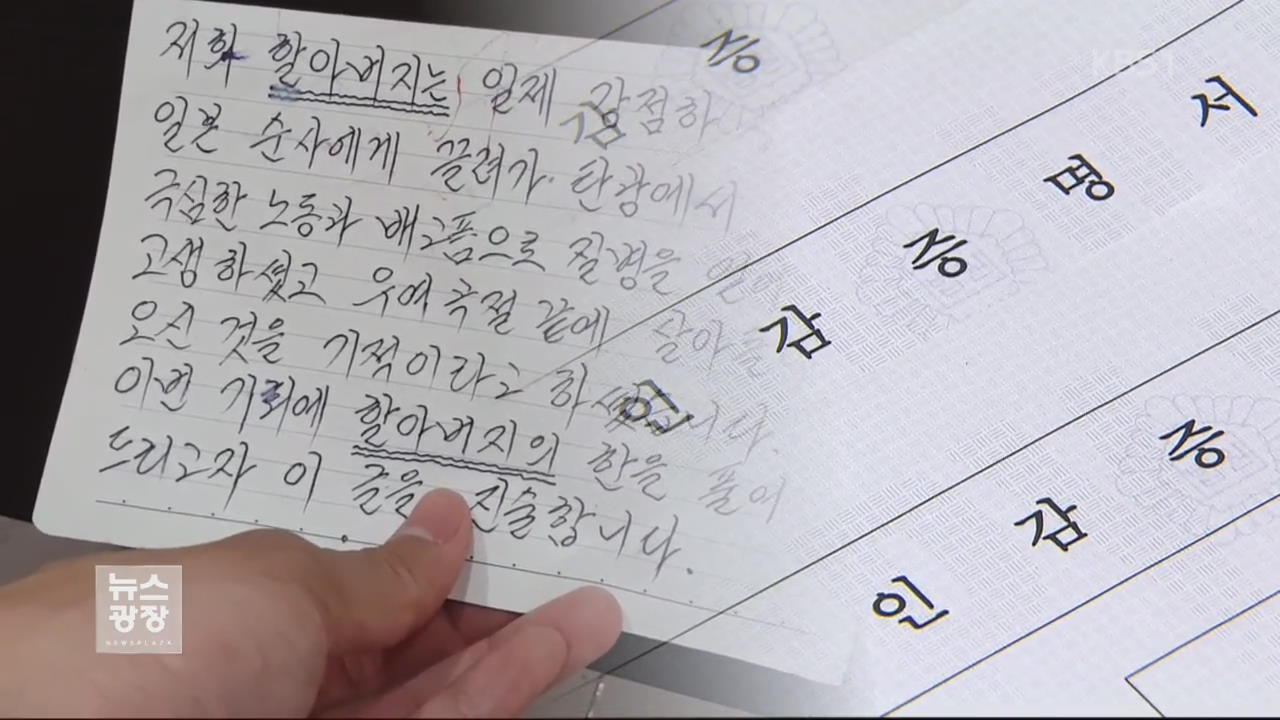 저희 할아버지는 일제 강점하
일본 순사에게 끌려가 탄광에서
극심한 노동과 배고픔으로 질병을 얻어
고생하셨고 우여곡절 끝에 살아
오신 것을 기적이라고 하셨습니다.
이번 기회에 할아버지의 한을 풀어
드리고자 이 글을 진술합니다.
인 감 증 명 서
인 감 증
인 감 증
KBS1
뉴스
광장
NEWSPLAZA